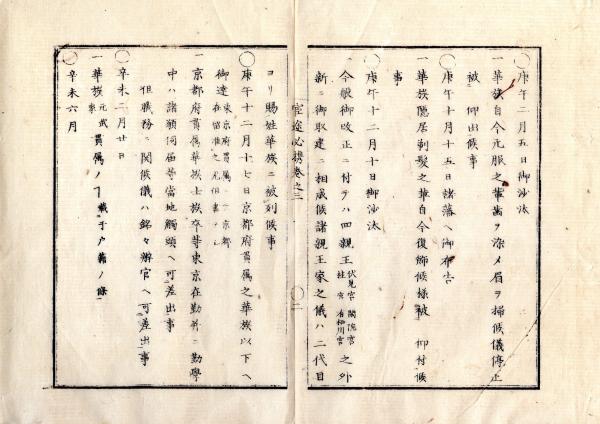 ○庚午二月五日御沙汰
一華族自今元服之輩歯ヲ染メ眉ヲ掃候儀停止
被　仰出候事
○庚午十月十五日諸藩ヘ御布告
一華族隠居剃髪之輩自今復飾候様被　仰付候
事
○庚午十二月十日御沙汰
今般御改正ニ付テハ四親王伏見宮 閑院宮 桂宮 有栖川宮之外
新ニ御取建ニ相成候諸親王家之儀ハ二代目
官途必携巻之二
○二
ヨリ賜姓華族ニ被列候事
○庚午十二月十七日京都府貫属之華族以下ヘ
御達
一京都府貫属華族士族卒等東京在勤并ニ勤学
中ハ諸願伺届等当地觸頭ヘ可差出事
但職務ニ関候儀ハ銘々辨官ヘ可差出事
○辛未二月廿日
一華族元武家貫属ノ丁載于戸籍ノ條
○辛未六月